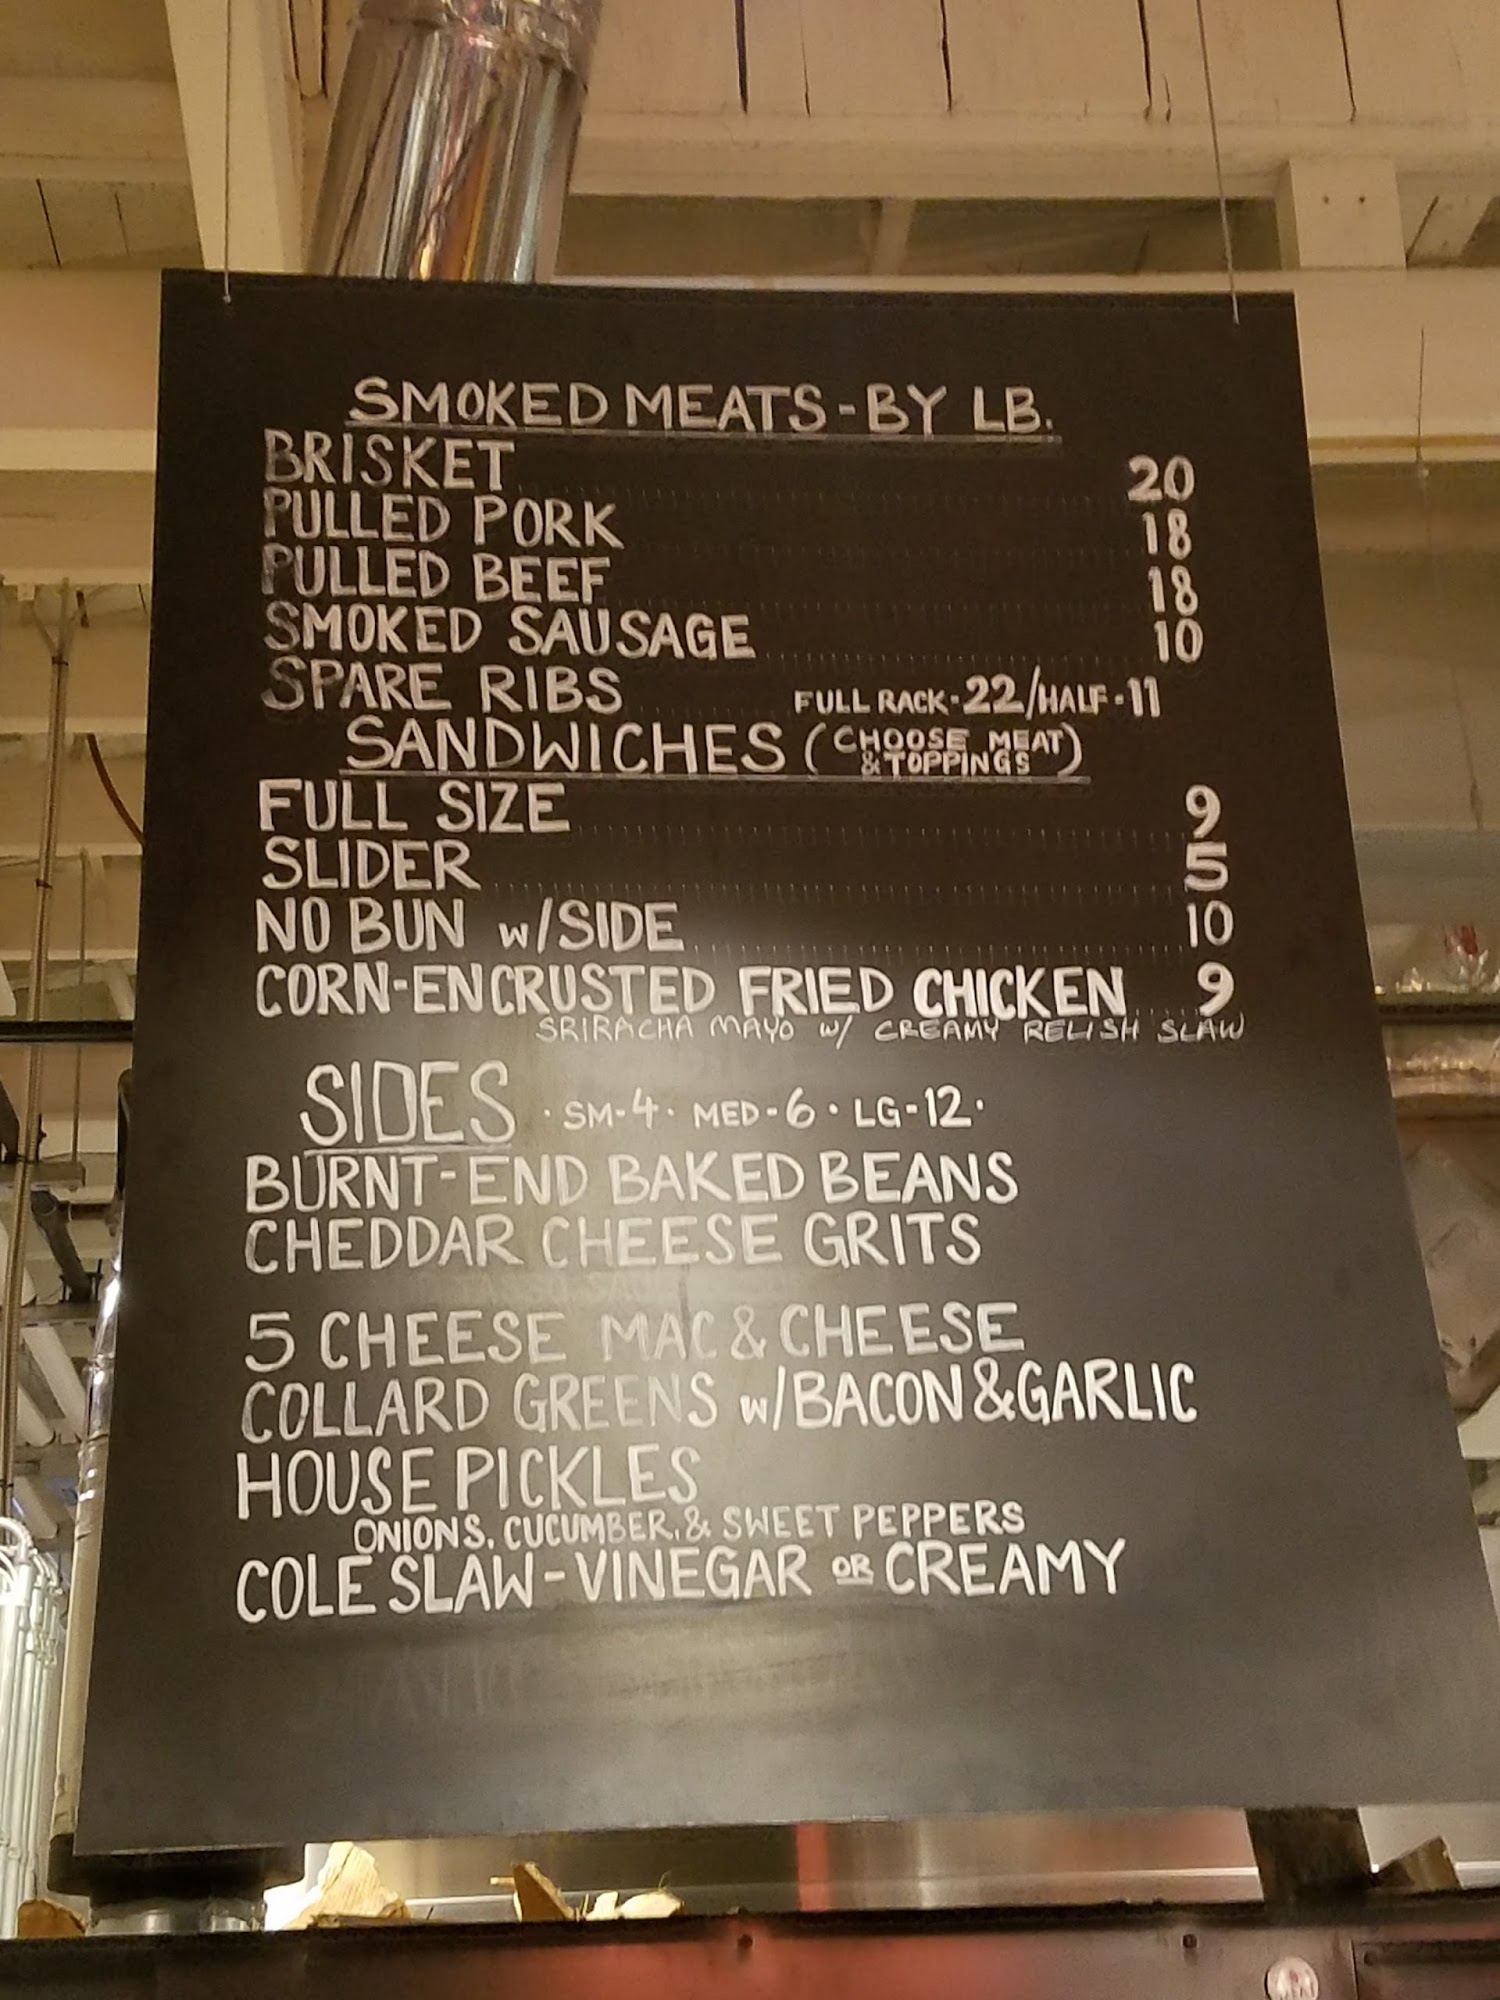 SMOKED MEATS - BY LB.
BRISKET 20
PULLED PORK 18
PULLED BEEF 18
SMOKED SAUSAGE 10
SPARE RIBS FULL RACK - 22 / HALF - 11
SANDWICHES ( CHOOSE MEAT
& TOPPINGS )
FULL SIZE 9
SLIDER 5
NO BUN w/SIDE 10
CORN-ENCRUSTED FRIED CHICKEN 9
SRIRACHA MAYO w/ CREAMY RELISH SLAW
SIDES · SM-4 · MED-6 · LG-12 ·
BURNT-END BAKED BEANS
CHEDDAR CHEESE GRITS
5 CHEESE MAC & CHEESE
COLLARD GREENS w/BACON & GARLIC
HOUSE PICKLES
ONIONS, CUCUMBER, & SWEET PEPPERS
COLE SLAW - VINEGAR OR CREAMY